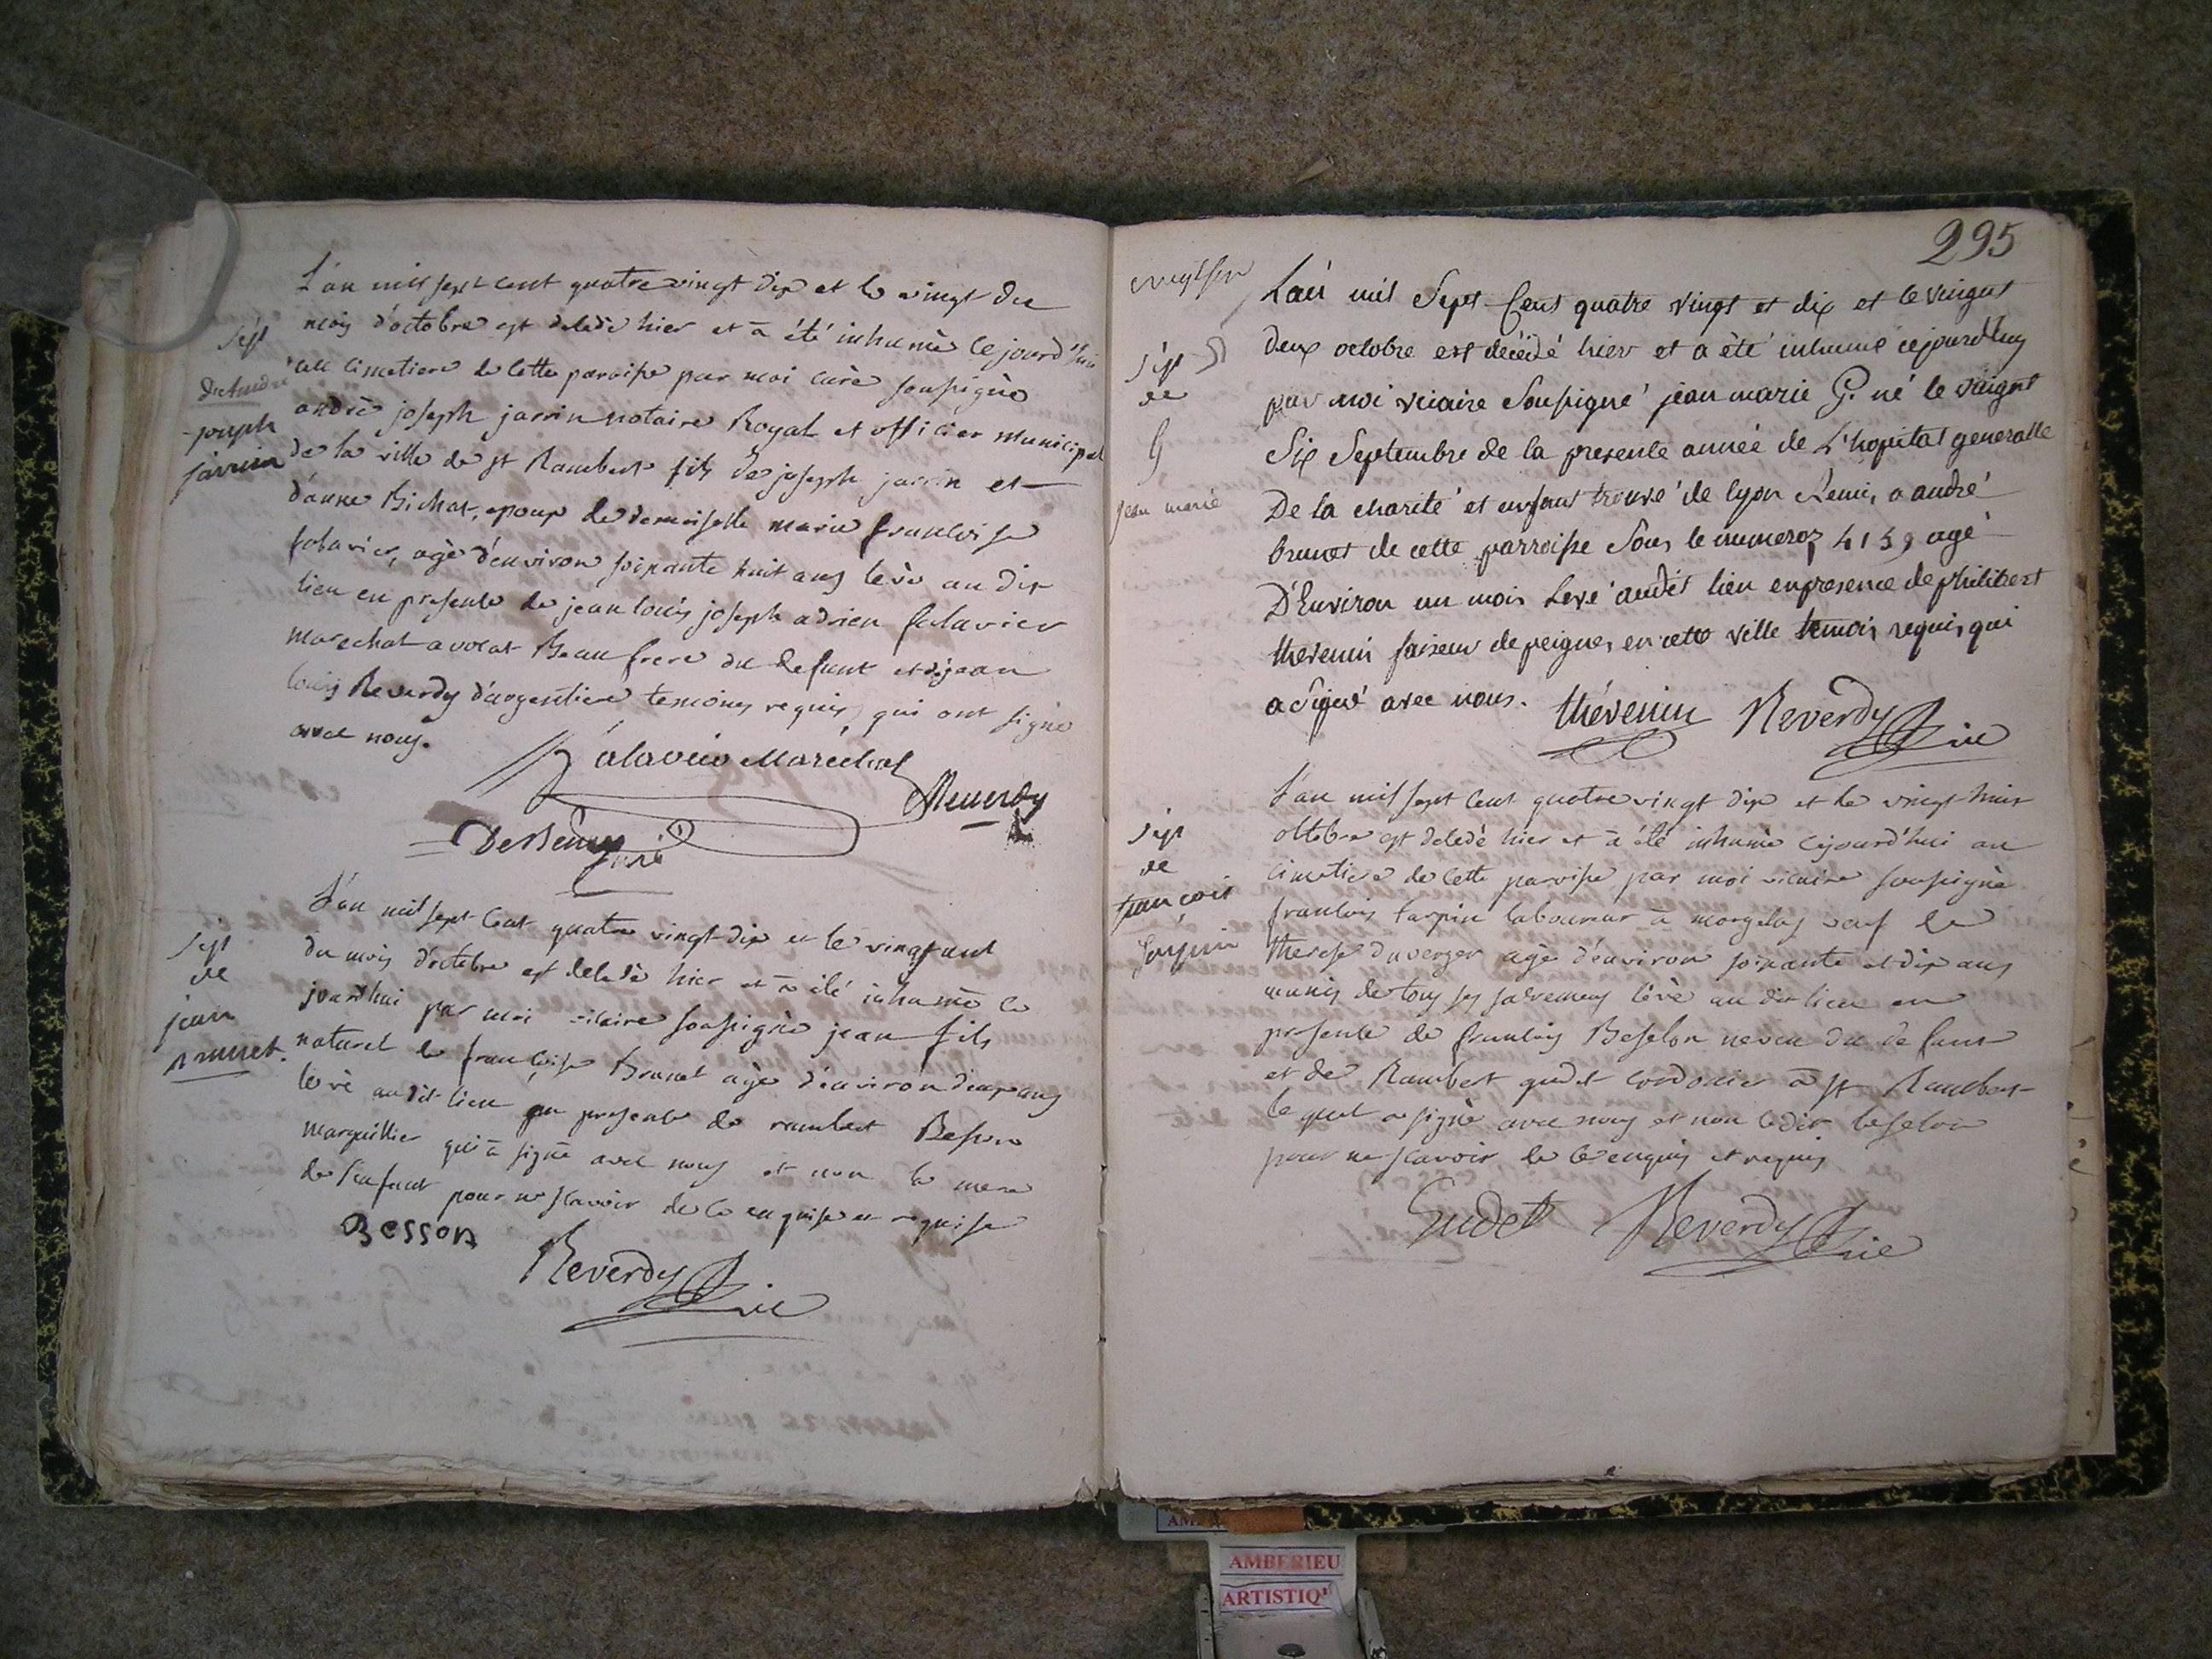 L'an mil sept cent quatre vingt dix et le vingt du
mois d'octobre est decedé hier et à été inhumé ce jourd'hui
au cimetiere de cette paroisse par moi curé soussigné
andré joseph jarrin notaire Royal et officier municipal
de la ville de st Rambert fils de joseph jarrin et
d'anne Bichat, epoux de demoiselle marie françoise
falavier, agé d'environ soixante huit ans levé au dit
lieu en presence de jean louis joseph adrien falavier
marechal avocat Beau frere du defunt et de jean
louis Reverdy d'argentiere temoins requis, qui ont signé
avec nous.
falavier Maréchal
Reverdy
curé
sept
d'andré
joseph
jarrin
L'an mil sept cent quatre vingt dix et le vingt un
du mois d'octobre est decedé hier et à été inhumé ce
jourdhui par moi vicaire soussigné jean fils
naturel de françoise Brunet agé d'environ deux ans
levé au dit lieu en presence de rambert Besson
marguillier qui à signé avec nous et non la mere
de l'enfant pour ne scavoir de ce enquise et requise
Besson
Reverdy vic
sept
de
jean
Brunet.
295
L'an mil Sept Cens quatre vingt et dix et le vingt
deux octobre est décédé hier et a été inhumé cejourdhuy
par moi vicaire Soussigné jean marie G. né le vingt
Six Septembre de la presente année de L'hopital generalle
De la charité et enfant trouvé de lyon Remis a andré
brunet de cette parroisse Sous le numeros 4159 agé
D'Environ un mois Levé audit lieu en presence de philibert
thevenin faiseur de peignes en cette ville temoin requis qui
a Signé avec nous.
thévenin Reverdy vic
sept
de
G
jean marie
L'an mil sept cent quatre vingt dix et le vingt huit
octobre est decedé hier et à été inhumé cejourd'hui au
cimetiere de cette paroisse par moi vicaire soussigné
françois tarpin laboureur à morgelas veuf de
therese duverger agé d'environ soixante et dix ans
munis de tous ses sacremens levé au dit lieu en
presence de françois Beselon neveu du defunt
et de Rambert gudet cordonier à st Rambert
lequel a signé avec nous et non ledit beselon
pour ne scavoir de ce enquis et requis
Gudet Reverdy vic
sept
de
françois
tarpin
AMBERIEU
ARTISTIQ'